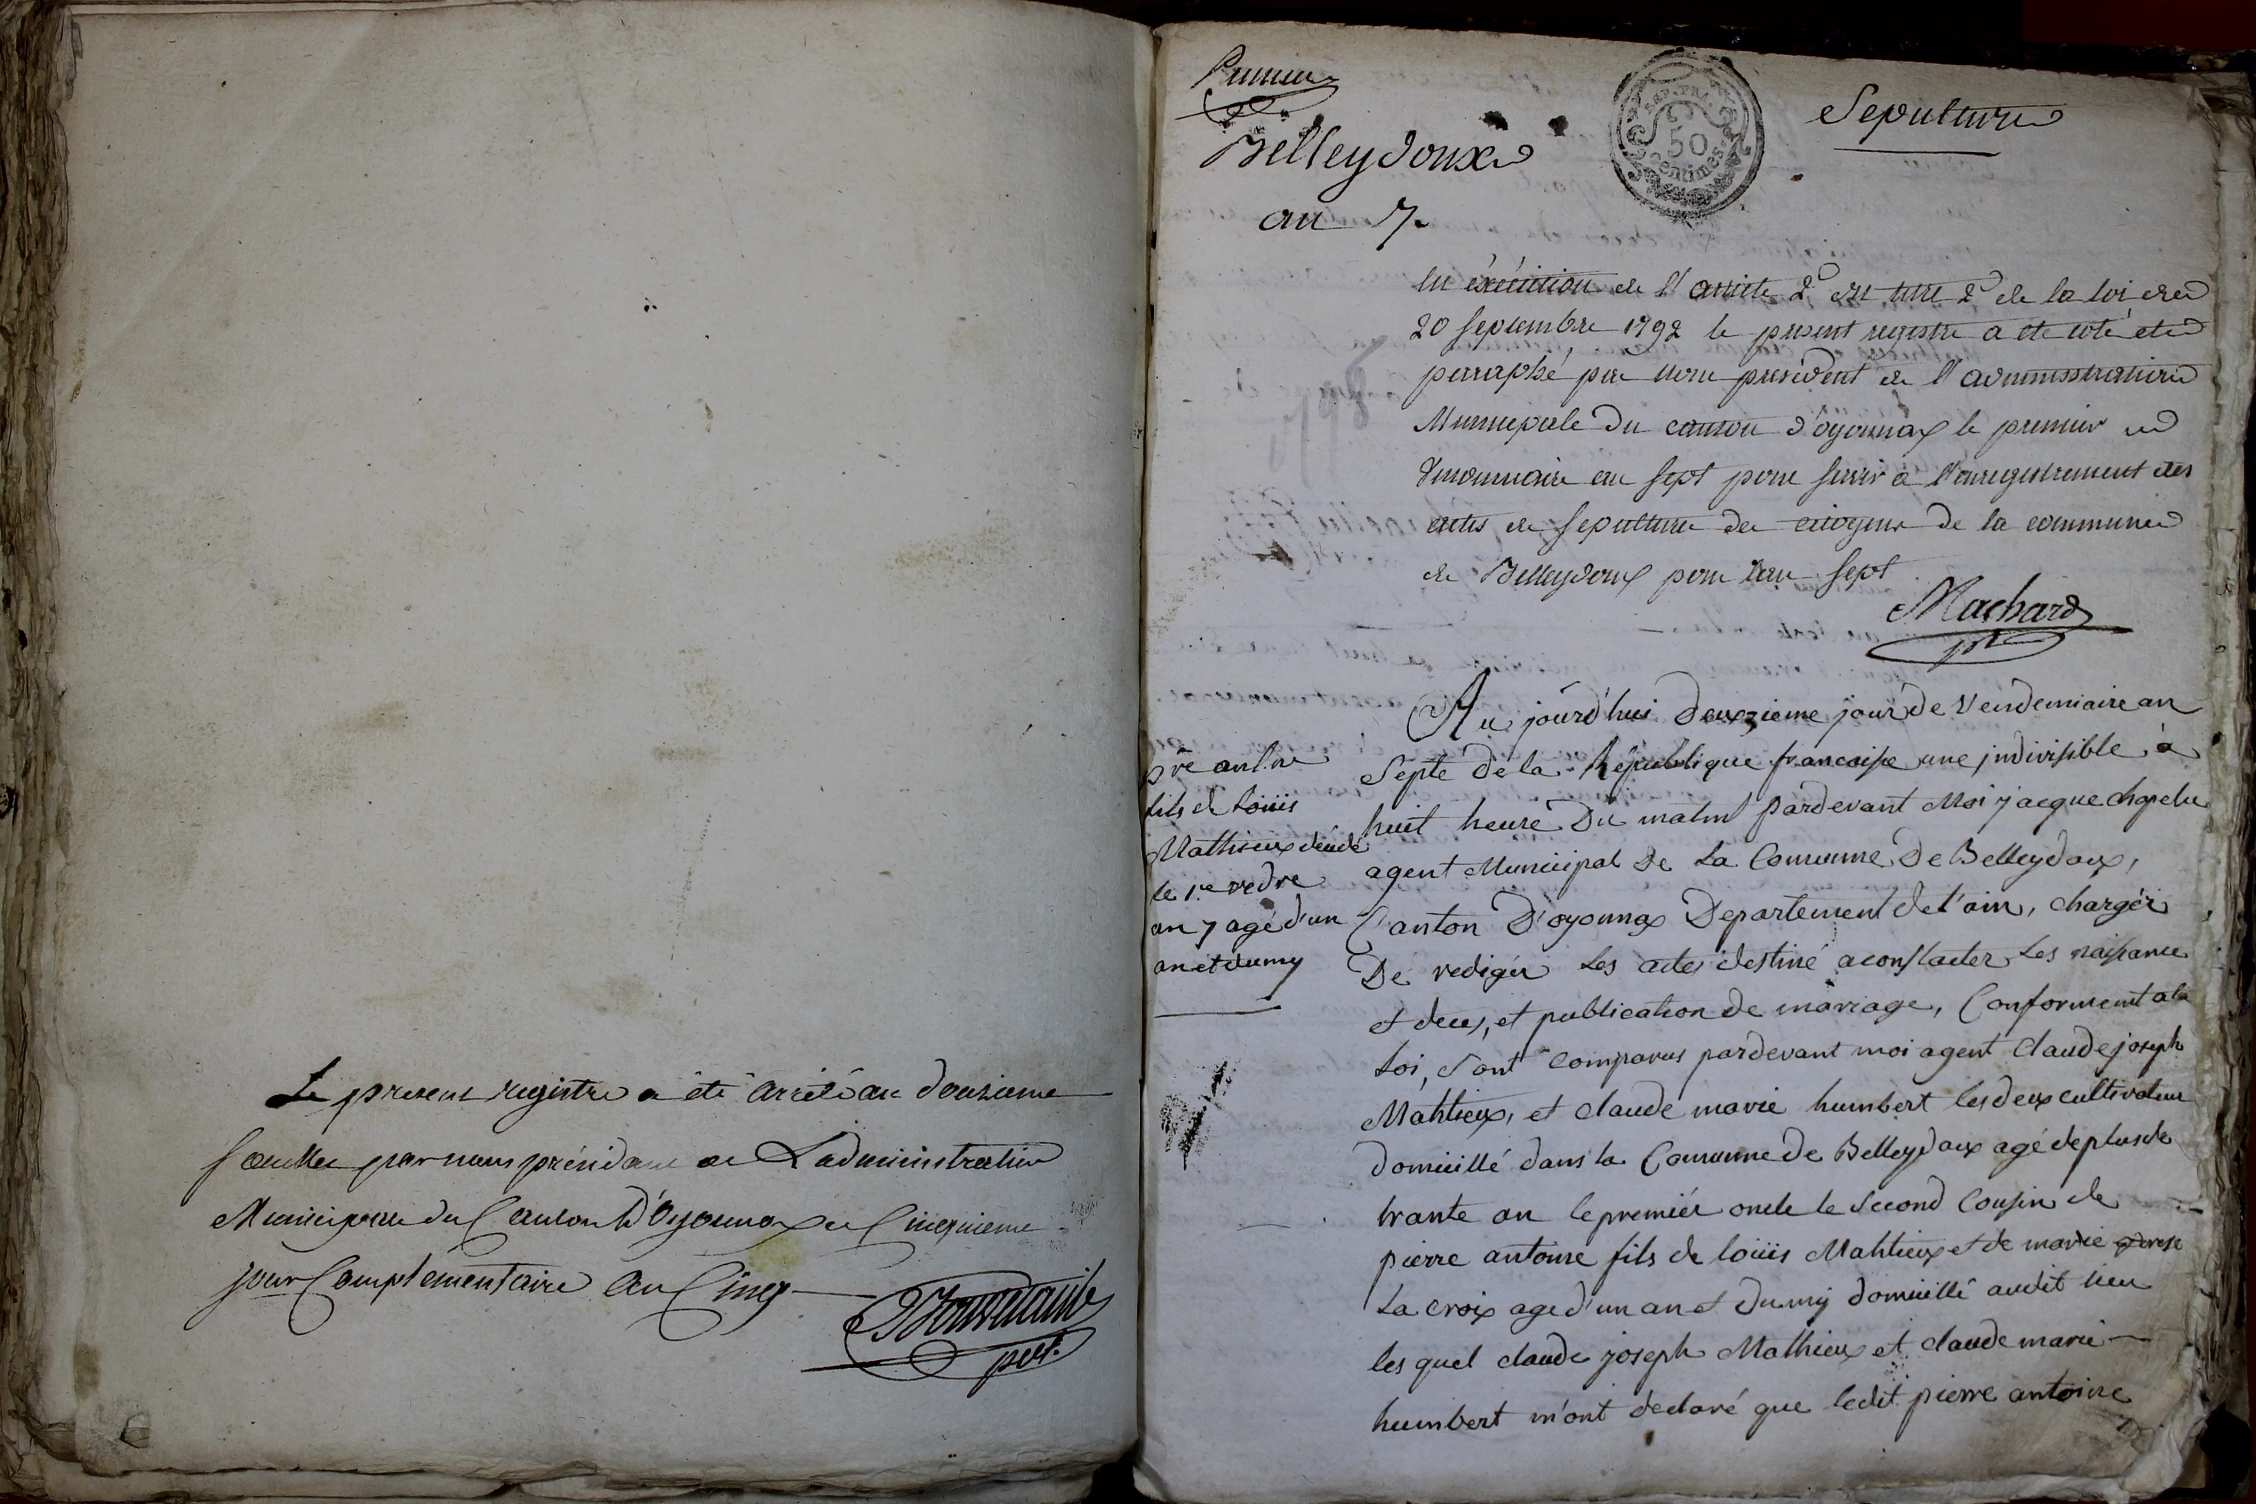 Le present registre a été arrêté au douzieme
feuillet par nous président de Ladministration
Municipale du Canton D'Oyonnax le Cinquieme
jour Complementaire an Cinq
pdt.
Premier
Belleydoux
an 7.
REP. FRA.
50
Centimes
Sepulture
En éxécution de l'article 2e du titre 2e de la loi du
20 septembre 1792 le present registre a ete coté et
paraphé par nous président de l'administration
Municipale du canton d'oyonnax le premier
Vendemiaire an sept pour servir a l'enregistrement des
actes de sepulture des citoyens de la commune
de Belleydoux pour l'an sept
Machard
pdt
Au jourd'hui deuxzieme jour de Vendemiaire an
Septe de la Republique francaise une jndivisible à
huit heure Du matin pardevant Moi jacque chapelu
agent Municipal De La Commune De Belleydoux,
Canton D'oyonnax Departement de l'ain, chargér
De redigér Les actes destiné a constater Les naissance
et deces, et publication de mariage, Conforment a la
Loi, sont comparus pardevant moi agent claude joseph
Mahtieux, et claude marie humbert les deux cultivateur
domicillé dans la Commune de Belleydoux agé de plus de
trante an le premiér oncle le second Cousin de
pierre antoine fils de loüis Mahtieux et de marie
La croix age d'un an et dumy domicillé audit lieu
les quel claude joseph Mathieux et claude marie
humbert m'ont declaré que ledit pierre antoine
pre antne
fils de loüis
Mathieux décédé
le 1.re vedre
an 7 agé d'un
an et dumy